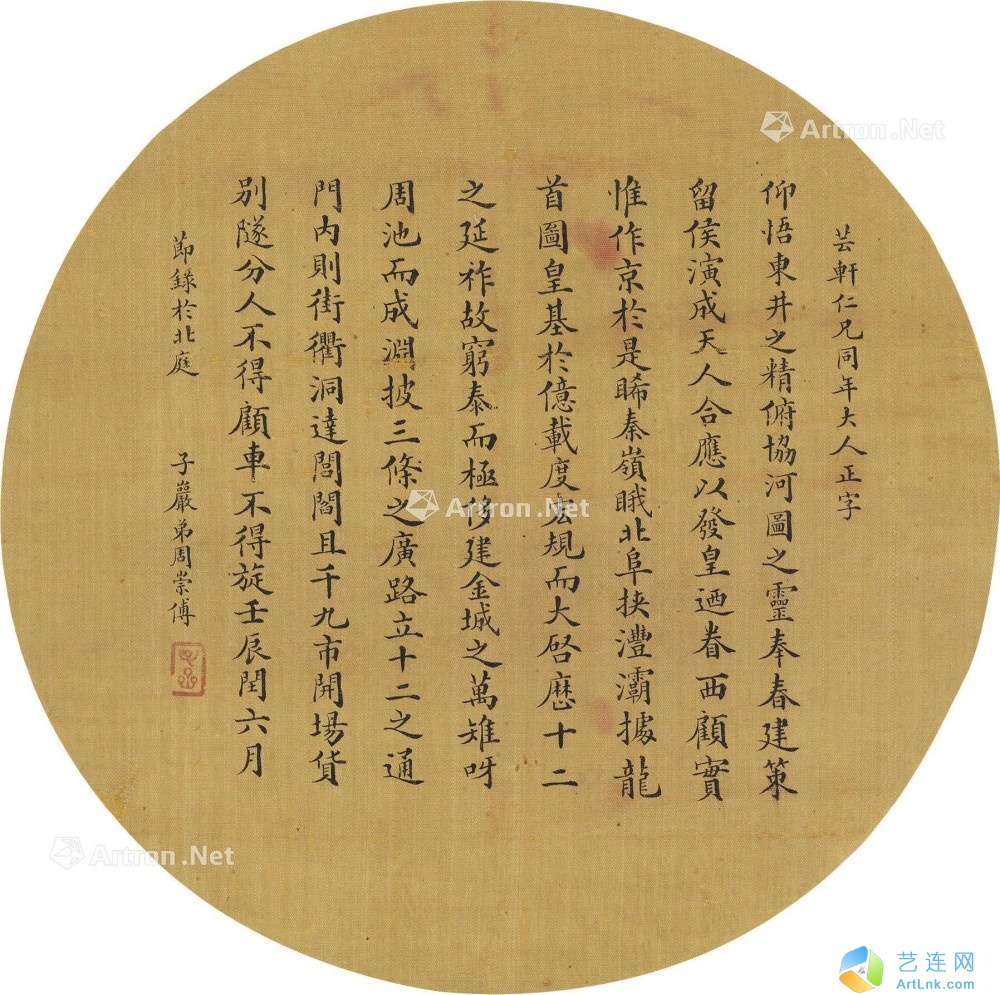 芸軒仁兄同年大人正字
仰悟東井之精俯協河圖之靈奉春建策
留侯演成天人合應以發皇迺眷西顧實
惟作京於是睎秦嶺睋北阜挾灃灞據龍
首圖皇基於億載度宏規而大啓歷十二
之延祚故窮泰而極侈建金城之萬雉呀
周池而成淵披三條之廣路立十二之通
門内則街衢洞達閭閻且千九市開場貨
別隧分人不得顧車不得旋壬辰閏六月
節錄於北庭 子巖弟周崇傅
Artron.Net
Artron.Net
Artron.Net
艺连网
ArtLnk.com